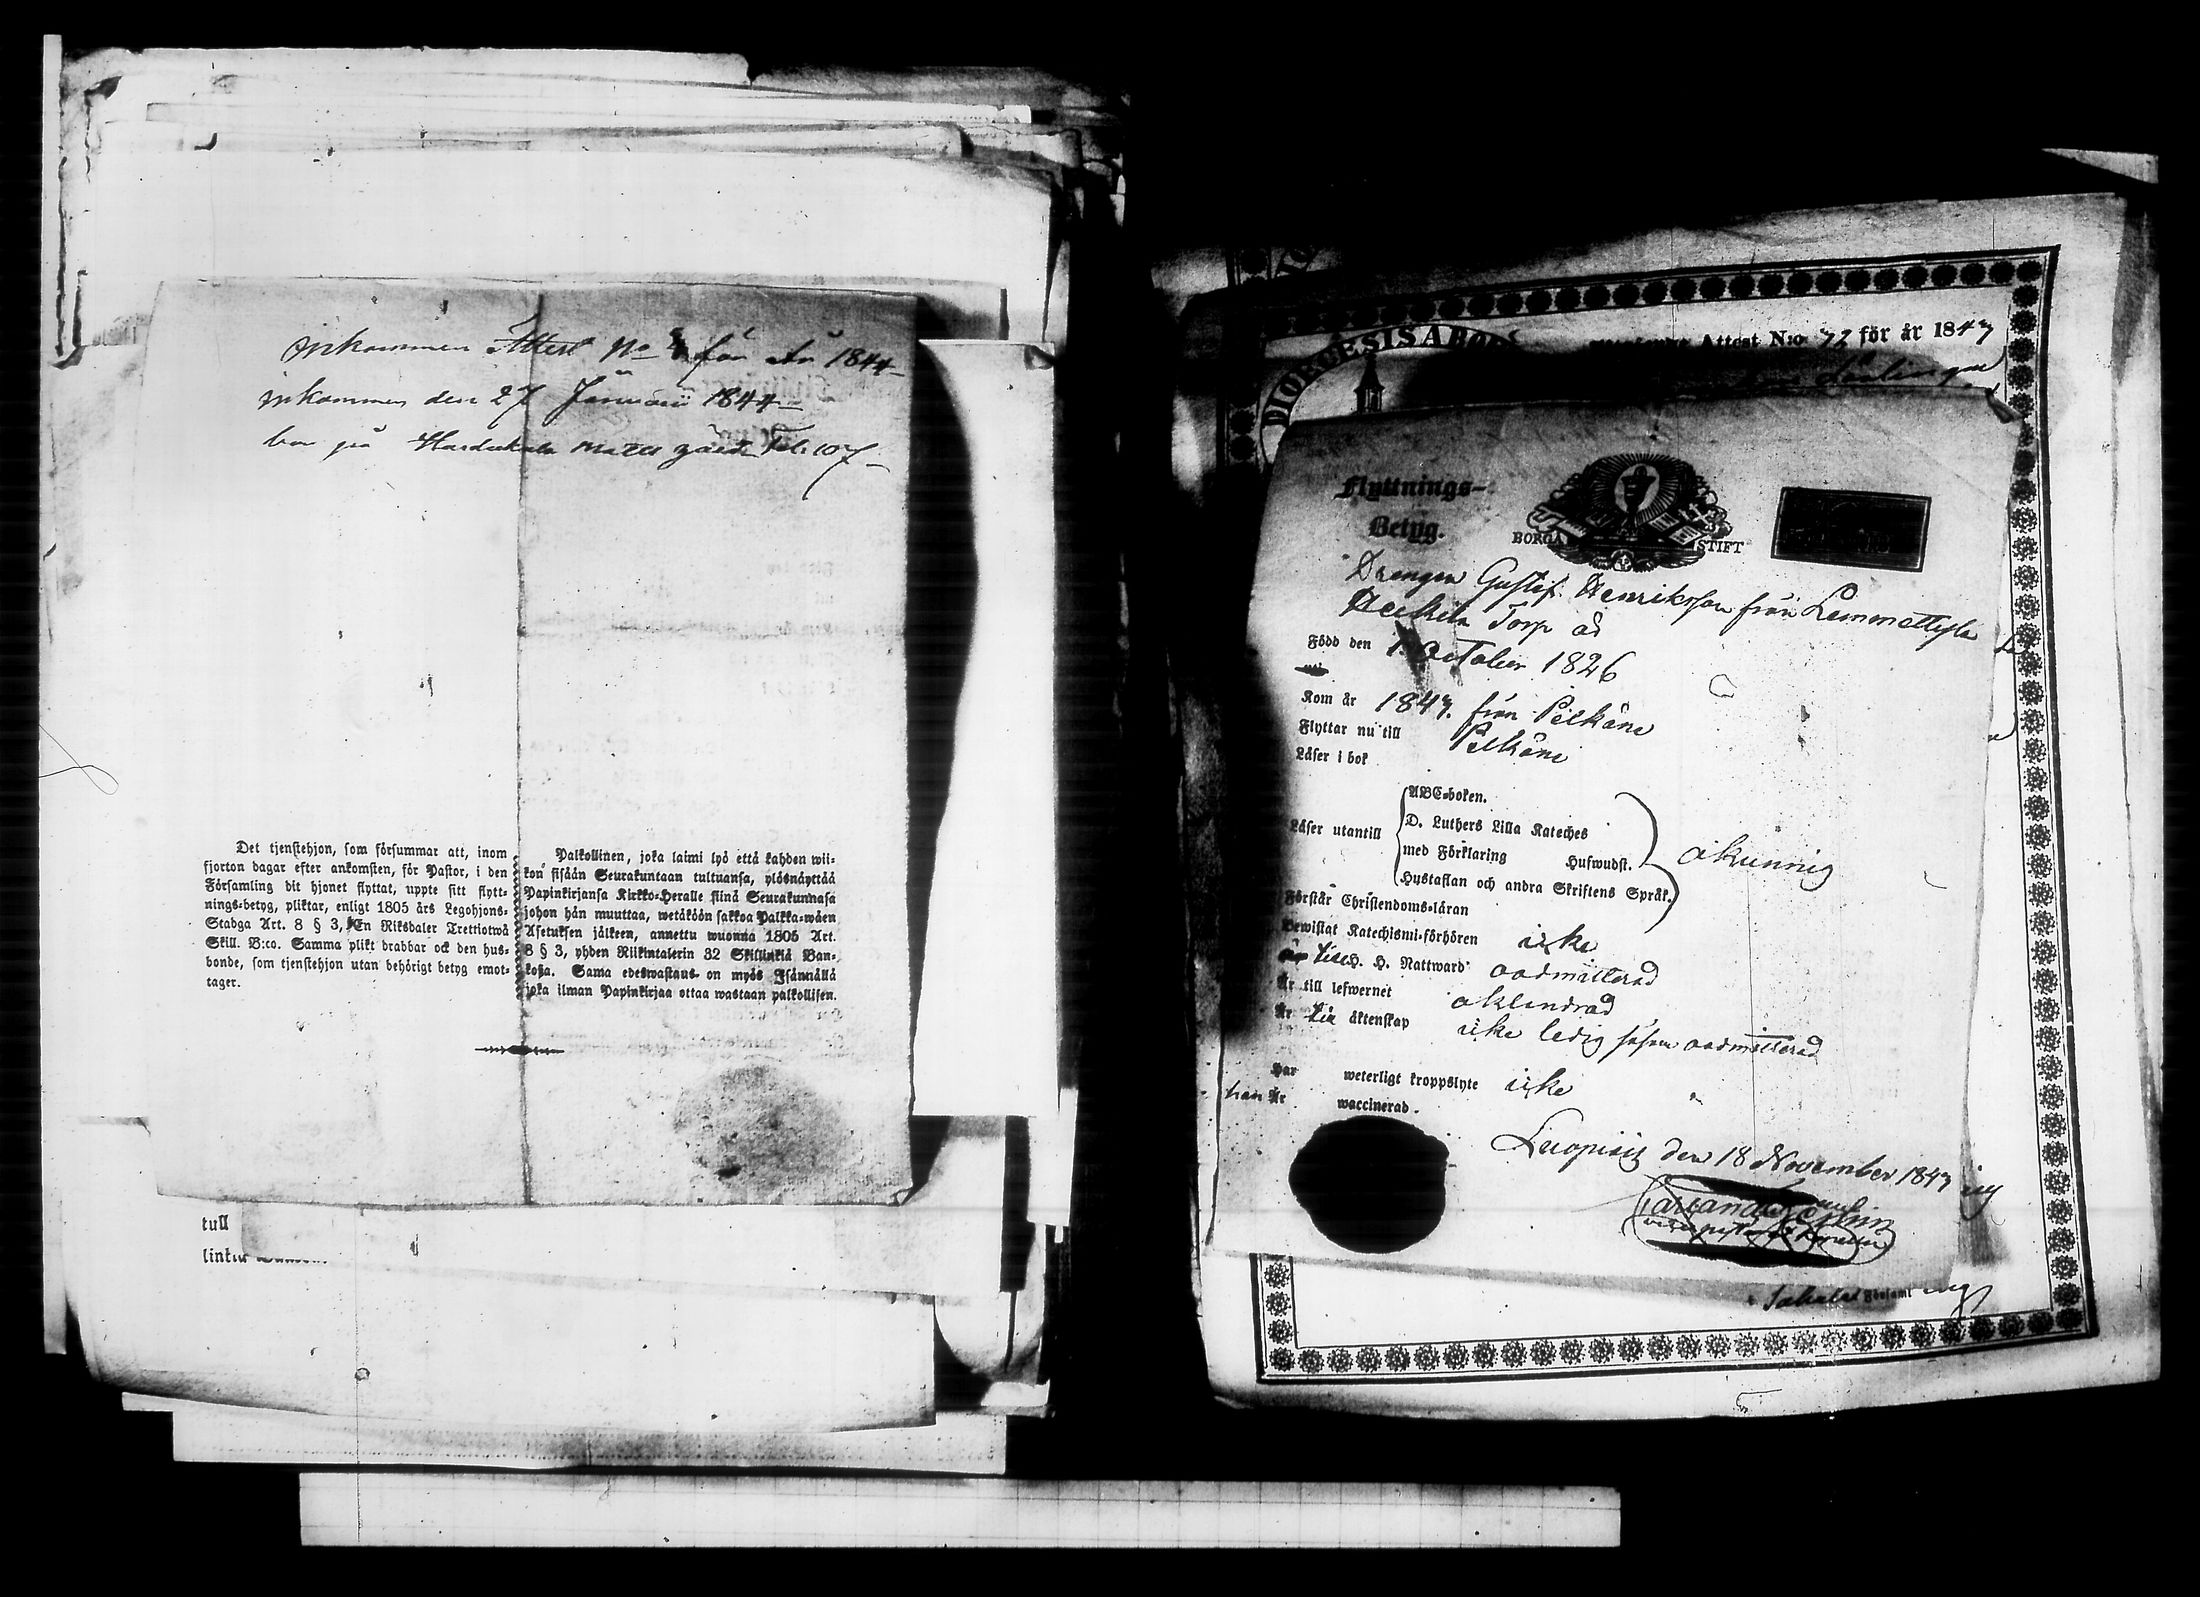 inkommen Attest No för År 1844
inkommen den 27 Januari 1844
bor på matts gård Fol: 107
Det tjenstehjon, som försummar att, inom
fjorton dagar efter ankomsten, för Pastor, i den
Församling dit hjonet flyttat, uppte sitt flytt-
nings-betyg, pliktar, enligt 1805 års Legohjons-
Stadga Art. 8 § 3, En Riksdaler Trettiotwå
Skill. B:co. Samma plikt drabbar ock den hus-
bonde, som tjenstehjon utan behörigt betyg emot-
tager.
Palkollinen, joka laimi lyö että kahden wii-
kon sisään Seurakuntaan tultuansa, ylösnäyttää
Papinkirjansa Kirkko-Herralle siinä Seurakunnasa
johon hän muuttaa, wetäköön sakkoa Palkka-wäen
Asetuksen jälkeen, annettu wuonna 1805 Art.
8 § 3, yhden Riikintalerin 32 Skillinkiä Ban-
kosa. Sama edeswastaus on myös Isännällä
joka ilman Papinkirjaa ottaa wastaan palkollisen.
tull
DIOECESIS ABO
Attest N:o 72 för år 1843
Flyttnings-
Betyg.
BORGÅ STIFT
Drengen Gustaf Henriksson från Lemmettyla
Heikkila Torp äd
Född den 1 October 1826
Kom år 1843. från Pelkäne
Flyttar nu till Pelkäne
Läser i bok
Läser utantill
ABC-boken.
D. Luthers Lilla Kateches
med Förklaring Hufwudst.
Hustaflan och andra Skriftens Språk.
okunnig
Förstår Christendoms-läran
Bewistat Katechismi-förhören icke
är till H. H. Nattward oadmitterad
Är till lefwernet oklandrad
Är till äktenskap icke ledig såsom oadmitterad
Har weterligt kroppslyte icke
han Är waccinerad.
Luopiois den 18 November 1843
Församl